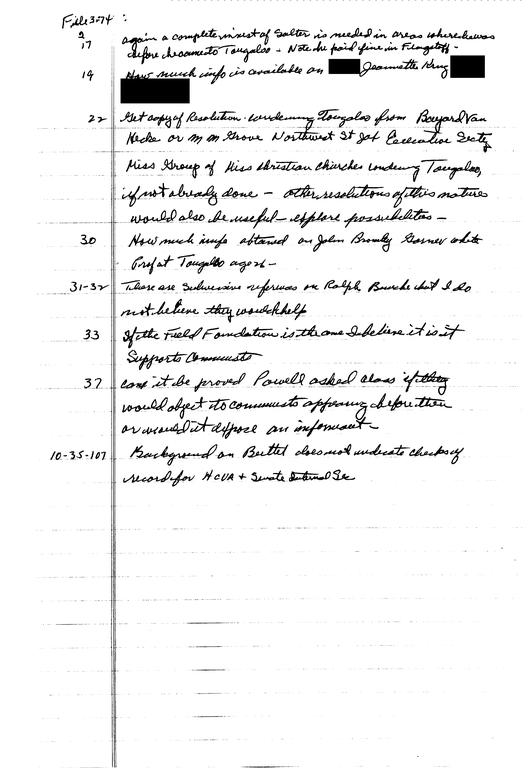 File 3-74 :
2
17 again a complete invest of Salter is needed in areas where he was
before he came to Tougaloo - Note he paid fine in Flagstaff -
19 How much info is available on Jeannette King
22 Get copy of Resolution condemning Tougaloo from Bayard Van
Hecke or M M Grove Northwest St Jax Executive Secty
Miss Group of Miss Christian churches condemng Tougaloo,
if not already done - other resolutions of this nature
would also be useful - explore possibilities -
30 How much info obtained on John Bromly Garner white
Prof at Tougaloo age 26 -
31-32 There are subversive references on Ralph Bunche but I do
not believe they would help
33 If the Field Foundation is the one I believe it is it
Supports Communists
37 can it be proved Powell asked class if they
would object to communists appearing before them
or would it expose an informant -
10-35-107 Background on Buttel does not indicate checks of
record for HCUA + Senate Internal Sec